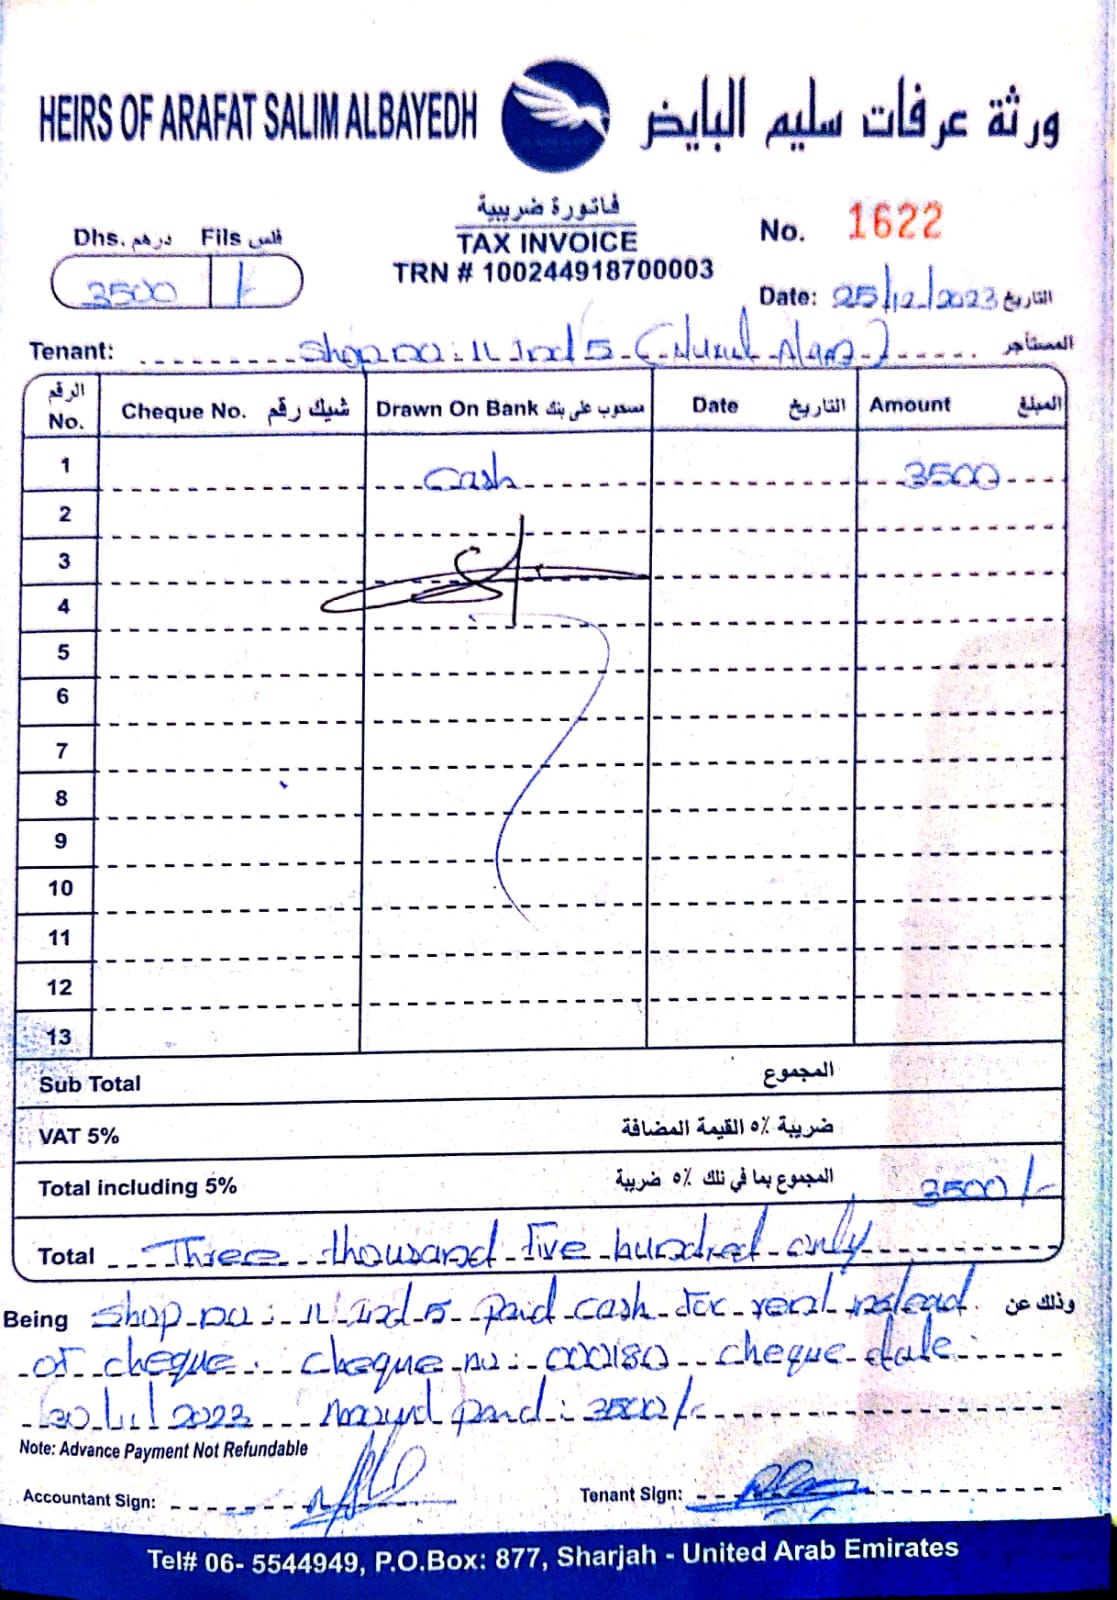 HEIRS OF ARAFAT SALIM ALBAYEDH ورثة عرفات سليم البايض
فاتورة ضريبية
TAX INVOICE
TRN # 100244918700003
No. 1622
Dhs. درهم Fils فلس
3500 /-
Date: 25/12/2023 التاريخ
Tenant: Shop no: 11 Ind 5 (Nurul Alam) المستأجر
الرقم No. Cheque No. شيك رقم Drawn On Bank مسحوب على بنك Date التاريخ Amount المبلغ
1 Cash 3500
2
3
4
5
6
7
8
9
10
11
12
13
Sub Total المجموع
VAT 5% ضريبة ٥% القيمة المضافة
Total including 5% المجموع بما في تلك ٥% ضريبة 3500/-
Total Three thousand five hundred only
Being Shop no: 11 Ind 5 paid cash for rent instead وذلك عن
of cheque. cheque no: 000180 cheque date
30/11/2023 paid: 3500/-
Note: Advance Payment Not Refundable
Accountant Sign: Tenant Sign:
Tel# 06- 5544949, P.O.Box: 877, Sharjah - United Arab Emirates